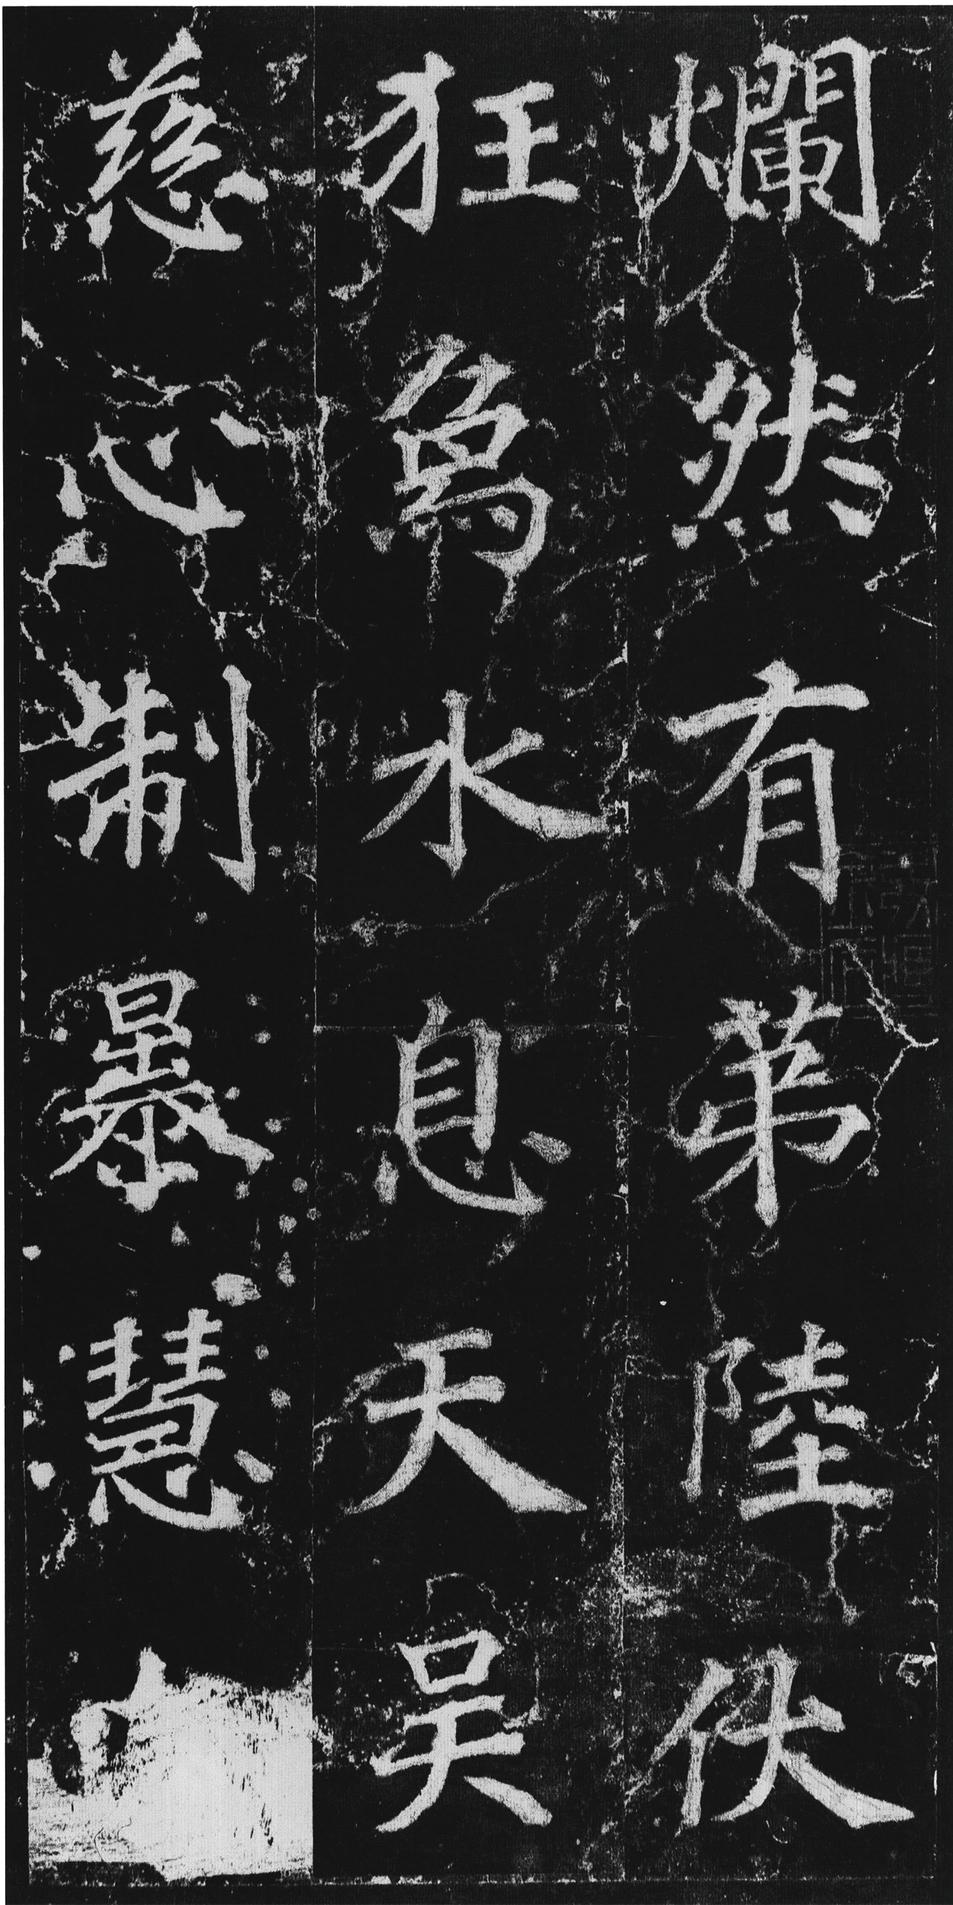 爛然有第陸伏
狂鳥水息天吳
慈心制暴慧